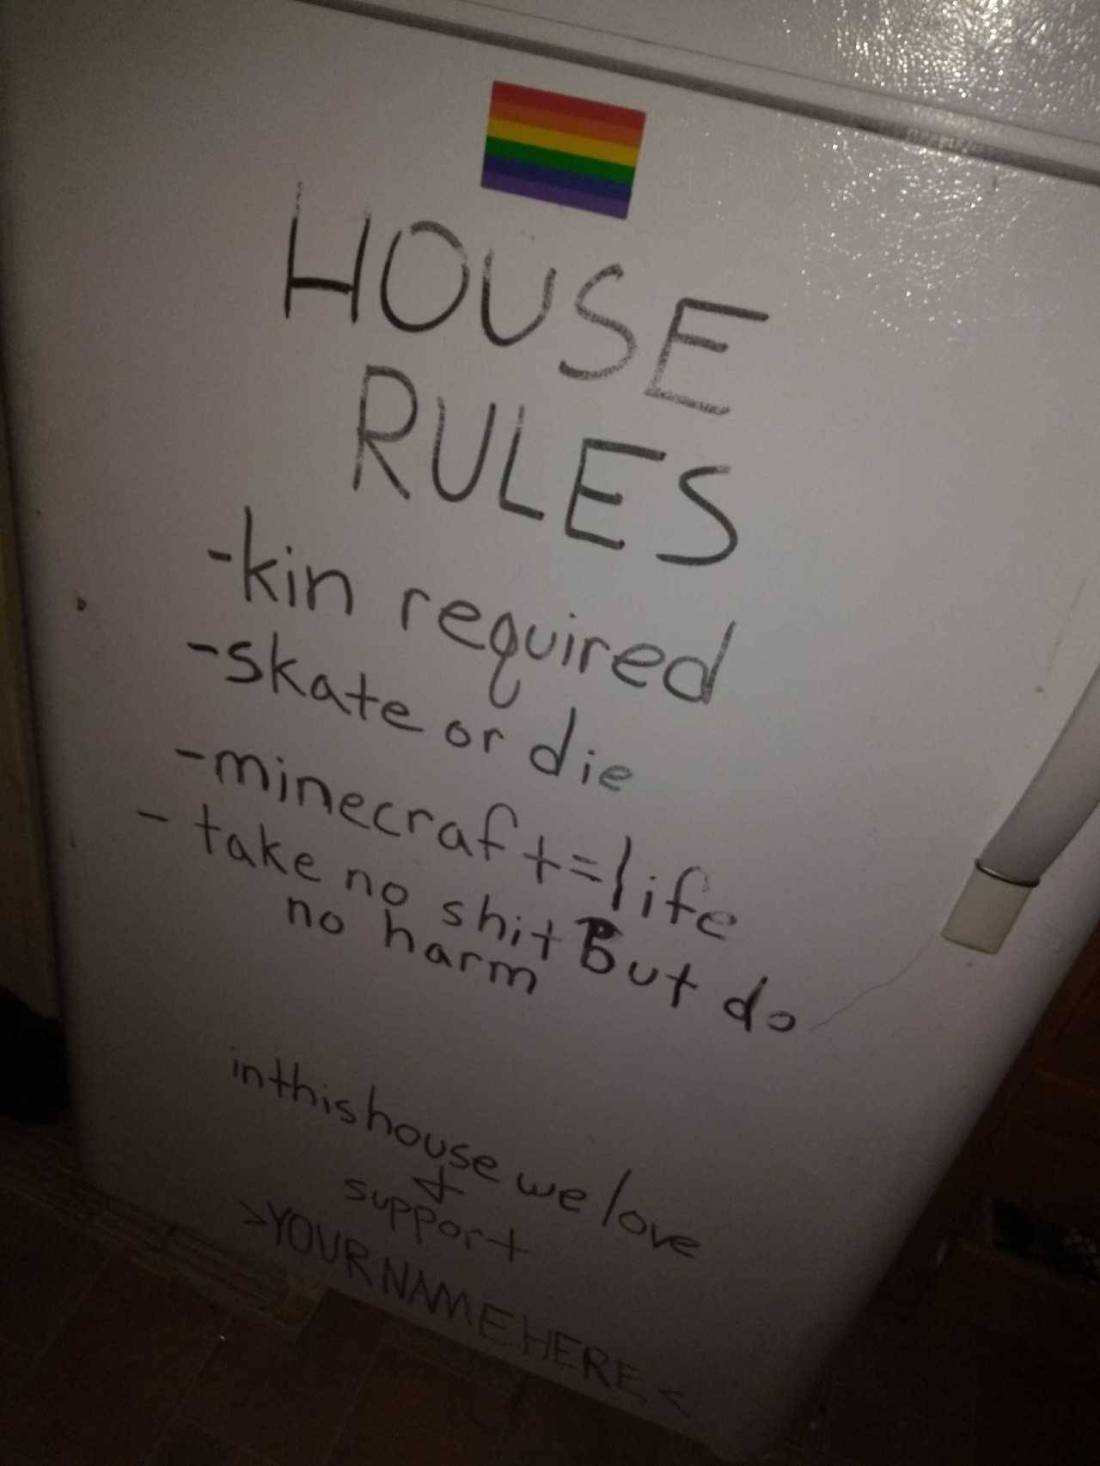 HOUSE
RULES
-kin required
-skate or die
-minecraft=life
- take no shit But do
no harm
inthishouse we love
+
support
>YOURNAMEHERE<